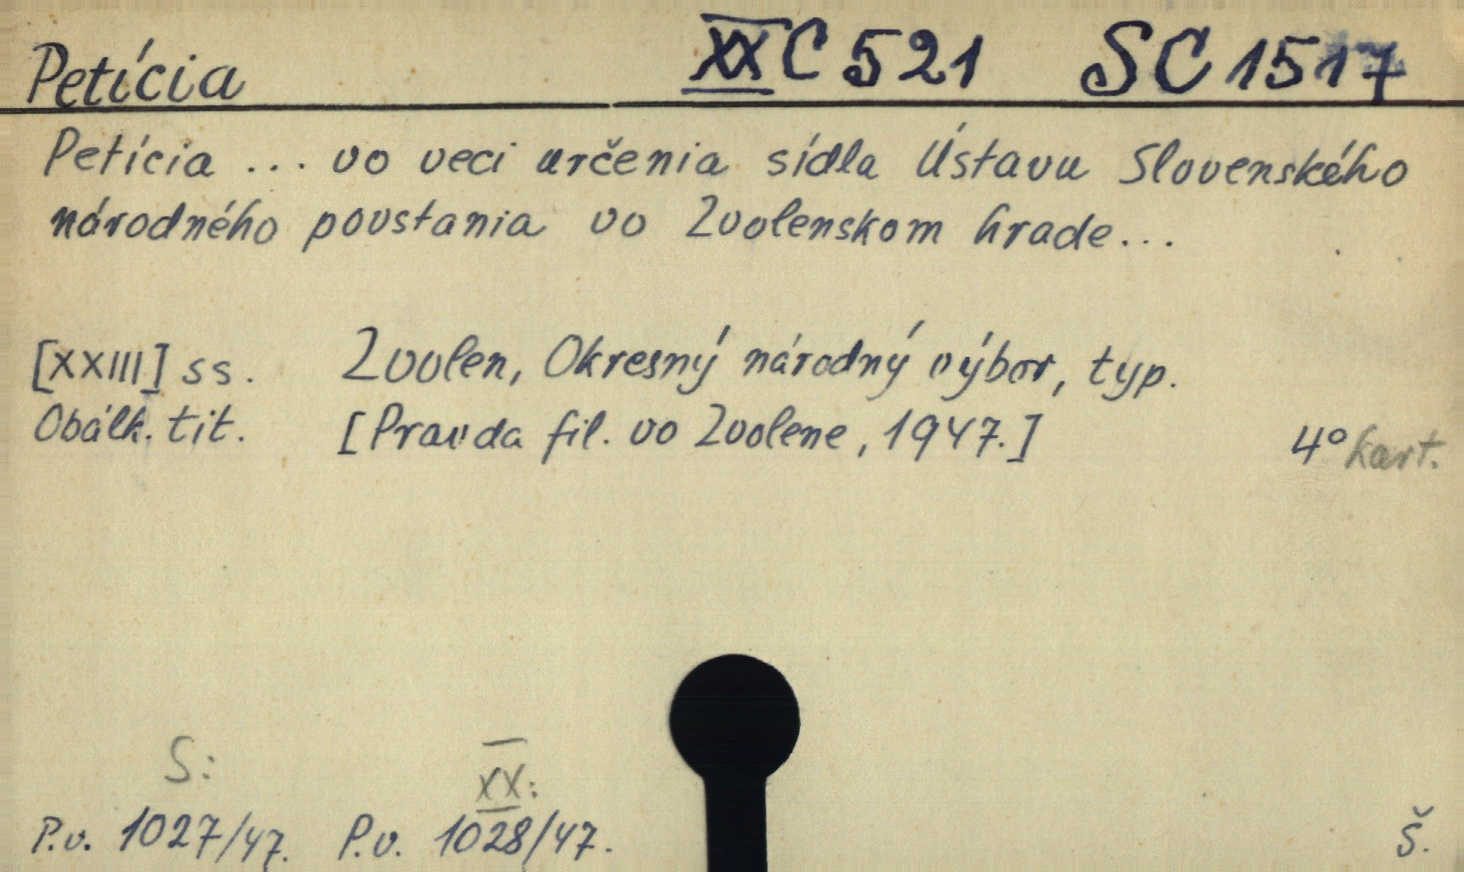 Petícia XX C 521 SC 1517
Petícia ... vo veci určenia sídla Ústavu Slovenského
národného povstania vo Zvolenskom hrade...
[XXIII] ss. Zvolen, Okresný národný výbor, typ.
Obálk. tit. [Pravda fil. vo Zvolene, 1947.] 4° kart.
S: XX:
P.v. 1027/47. P.v. 1028/47. Š.